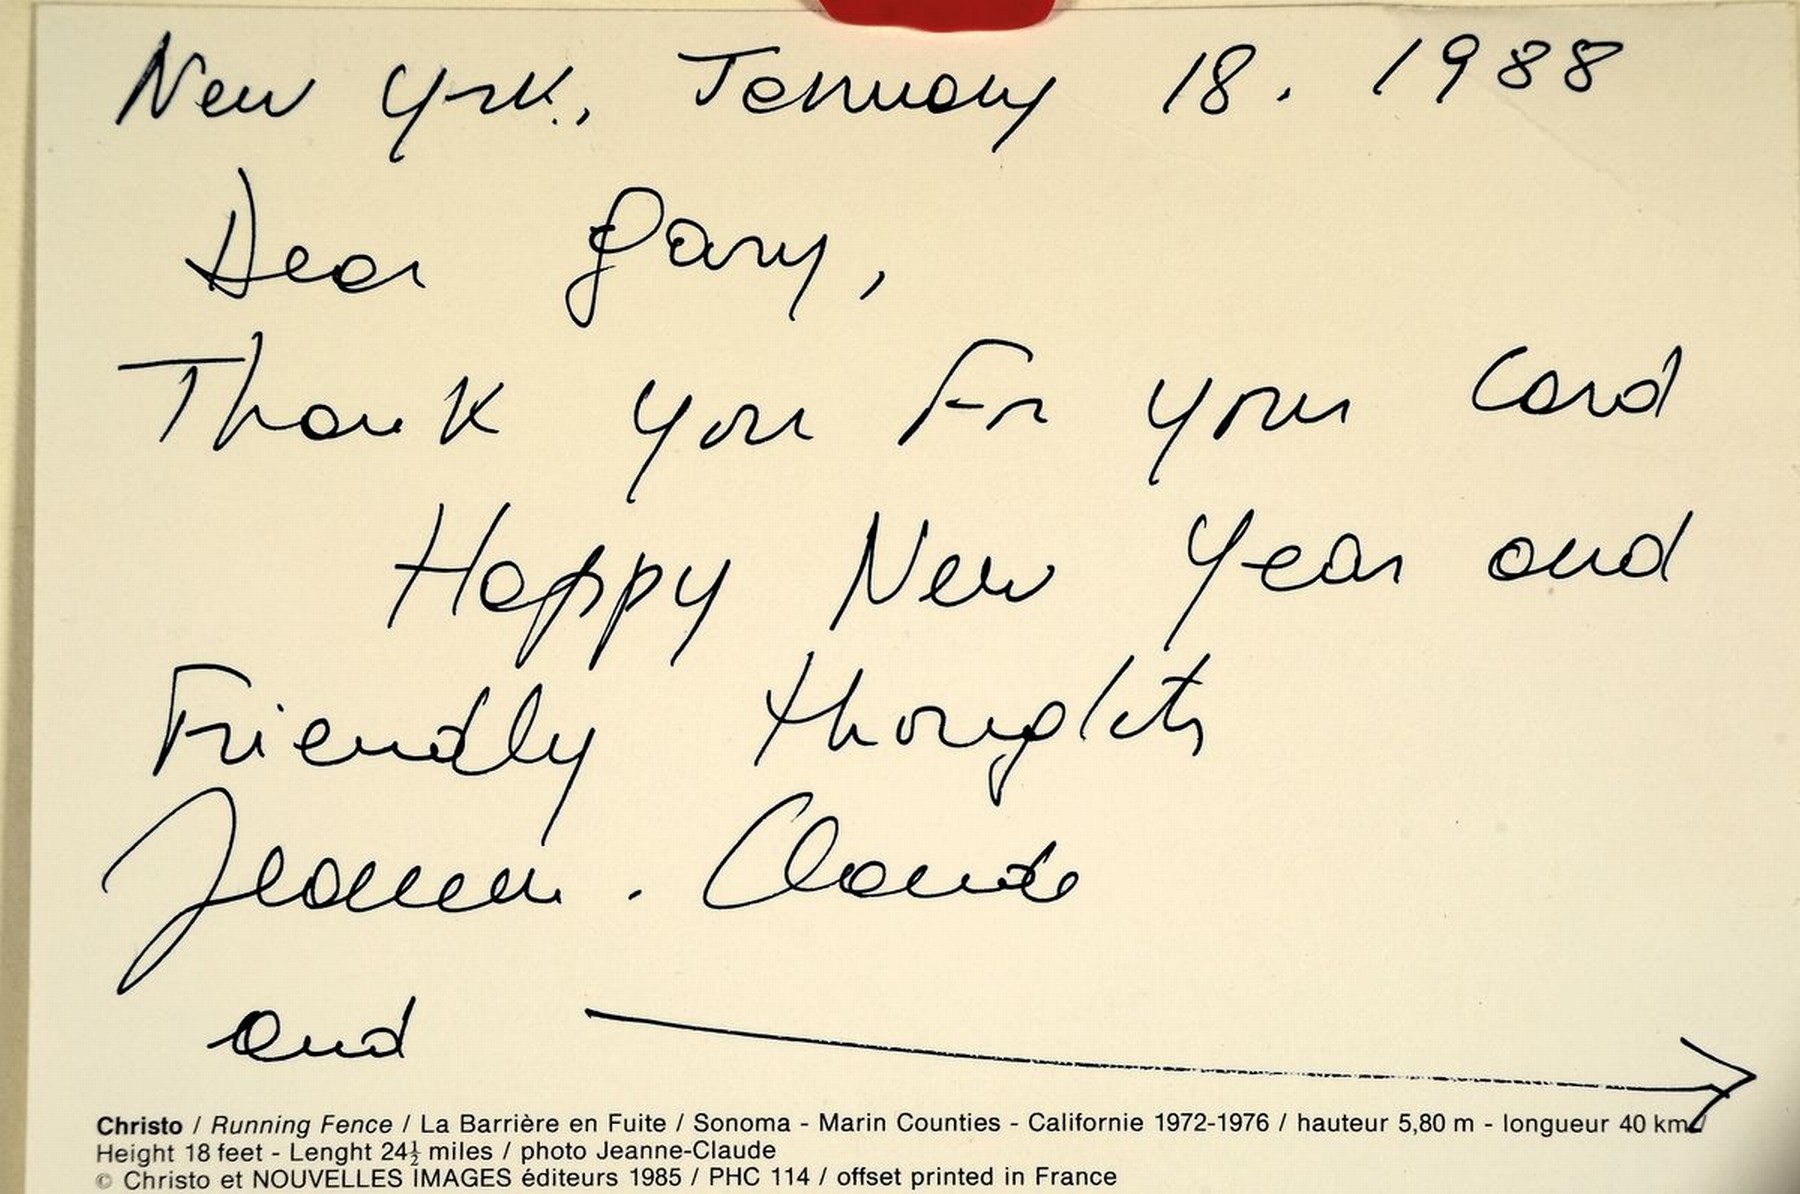 New York, January 18. 1988
Dear Gary,
Thank you For your Card
Happy New Year and
Friendly thoughts
Jeanne-Claude
and
Christo / Running Fence / La Barrière en Fuite / Sonoma - Marin Counties - Californie 1972-1976 / hauteur 5,80 m - longueur 40 km/
Height 18 feet - Lenght 24½ miles / photo Jeanne-Claude
© Christo et NOUVELLES IMAGES éditeurs 1985 / PHC 114 / offset printed in France